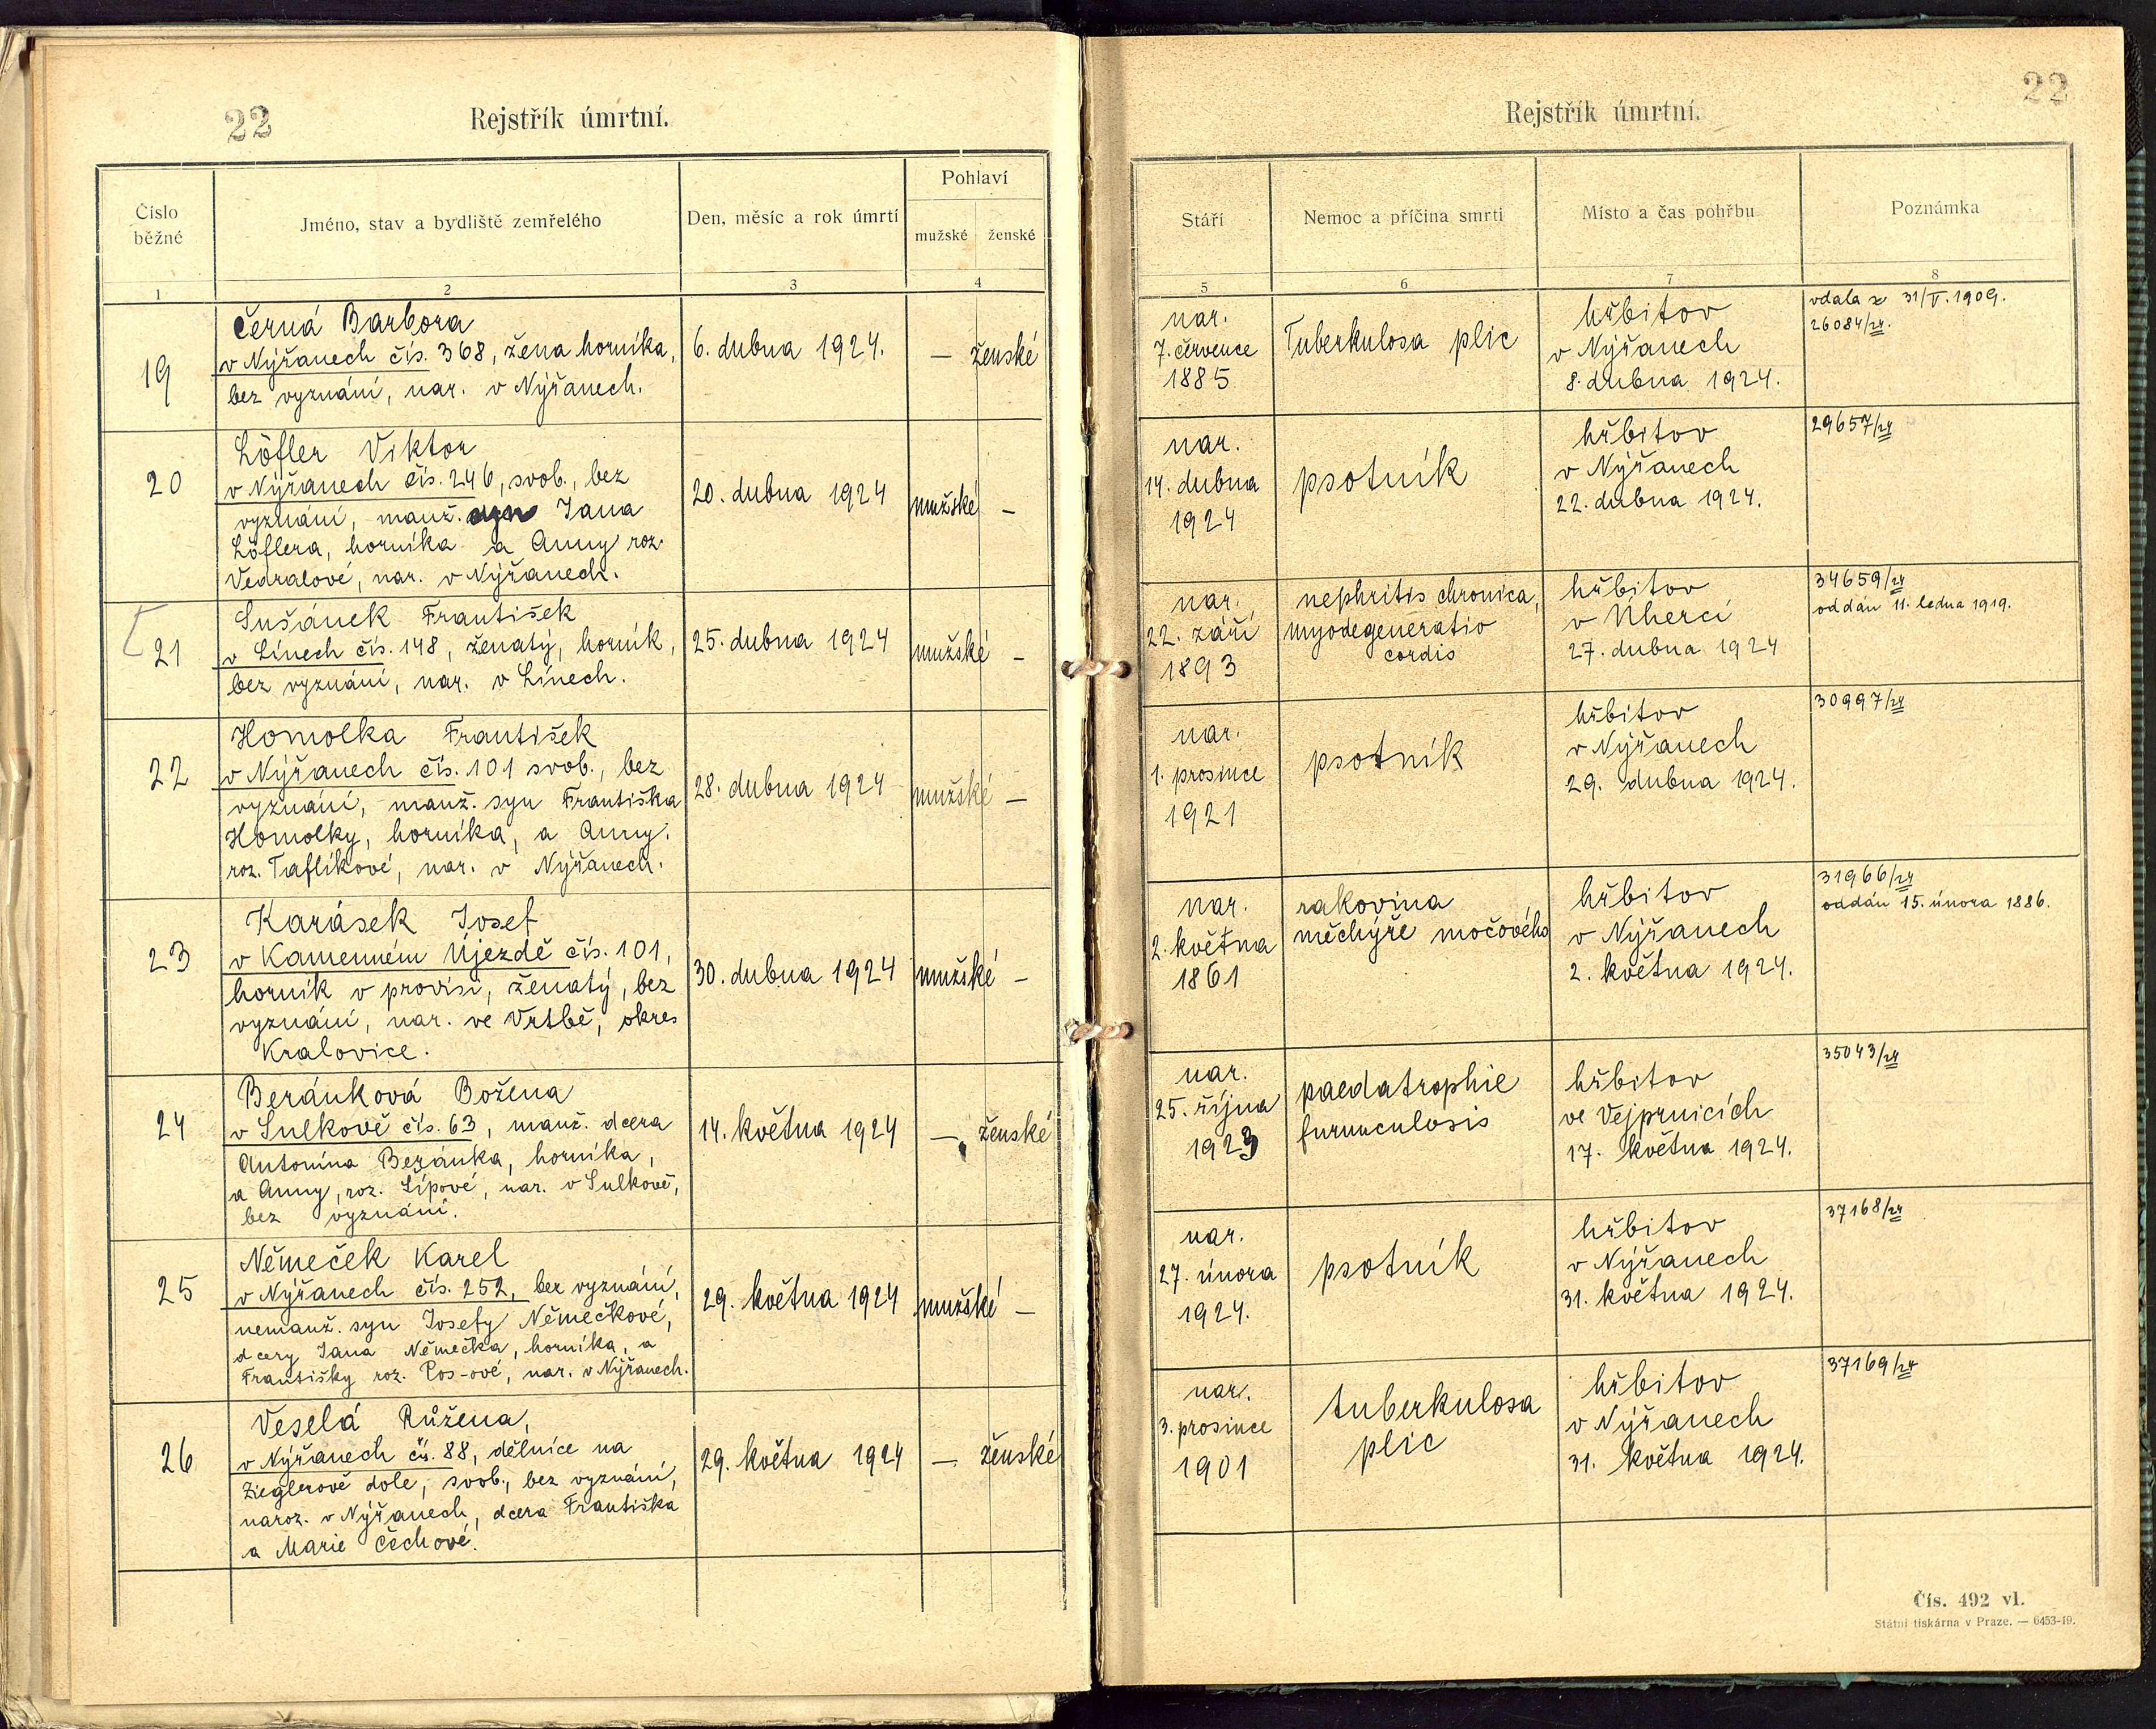 22
Rejstřík úmrtní.
Číslo běžné
Jméno, stav a bydliště zemřelého
Den, měsíc a rok úmrtí
Pohlaví
mužské
ženské
1
2
3
4
19
Černá Barbora
v Nýřanech čís. 368, žena horníka,
bez vyznání, nar. v Nýřanech.
6. dubna 1924.
— ženské
20
Löfler Viktor
v Nýřanech čís. 246, svob., bez
vyznání, manž. syn Jana
Löflera, horníka a Anny roz.
Vedralové, nar. v Nýřanech.
20. dubna 1924
mužské —
21
Sušánek František
v Línech čís. 148, ženatý, horník,
bez vyznání, nar. v Línech.
25. dubna 1924
mužské —
22
Homolka František
v Nýřanech čís. 101 svob., bez
vyznání, manž. syn Františka
Homolky, horníka, a Anny.
roz. Taflíkové, nar. v Nýřanech.
28. dubna 1924
mužské —
23
Karásek Josef
v Kamenném Újezdě čís. 101,
horník v provisi, ženatý, bez
vyznání, nar. ve Vrtbě, okres
Kralovice.
30. dubna 1924
mužské —
24
Beránková Božena
v Sulkově čís. 63, manž. dcera
Antonína Beránka, horníka,
a Anny, roz. Lípové, nar. v Sulkově,
bez vyznání.
14. května 1924
— ženské
25
Němeček Karel
v Nýřanech čís. 252, bez vyznání,
nemanž. syn Josefy Němečkové,
dcery Jana Němečka, horníka, a
Františky roz. Pos-ové, nar. v Nýřanech.
29. května 1924
mužské —
26
Veselá Růžena,
v Nýřanech čís. 88, dělnice na
Zieglerově dole, svob., bez vyznání,
naroz. v Nýřanech, dcera Františka
a Marie Čechové.
29. května 1924
— ženské
22
Rejstřík úmrtní.
Stáří
Nemoc a příčina smrti
Místo a čas pohřbu
Poznámka
5
6
7
8
nar.
7. července
1885
Tuberkulosa plic
hřbitov
v Nýřanech
8. dubna 1924.
vdala se 31/V. 1909.
26084/24.
nar.
14. dubna
1924
psotník
hřbitov
v Nýřanech
22. dubna 1924.
29657/24
nar.
22. září
1893
nephritis chronica,
myodegeneratio
cordis
hřbitov
v Úherci
27. dubna 1924
34659/24
oddán 11. ledna 1919.
nar.
1. prosince
1921
psotník
hřbitov
v Nýřanech
29. dubna 1924.
30997/24
nar.
2. května
1861
rakovina
měchýře močového
hřbitov
v Nýřanech
2. května 1924.
31966/24
oddán 15. února 1886.
nar.
25. října
1923
paedatrophie
furunculosis
hřbitov
ve Vejprnicích
17. května 1924.
35043/24
nar.
27. února
1924.
psotník
hřbitov
v Nýřanech
31. května 1924.
37168/24
nar.
3. prosince
1901
tuberkulosa
plic
hřbitov
v Nýřanech
31. května 1924.
37169/24
Čís. 492 vl.
Státní tiskárna v Praze. — 6453-19.